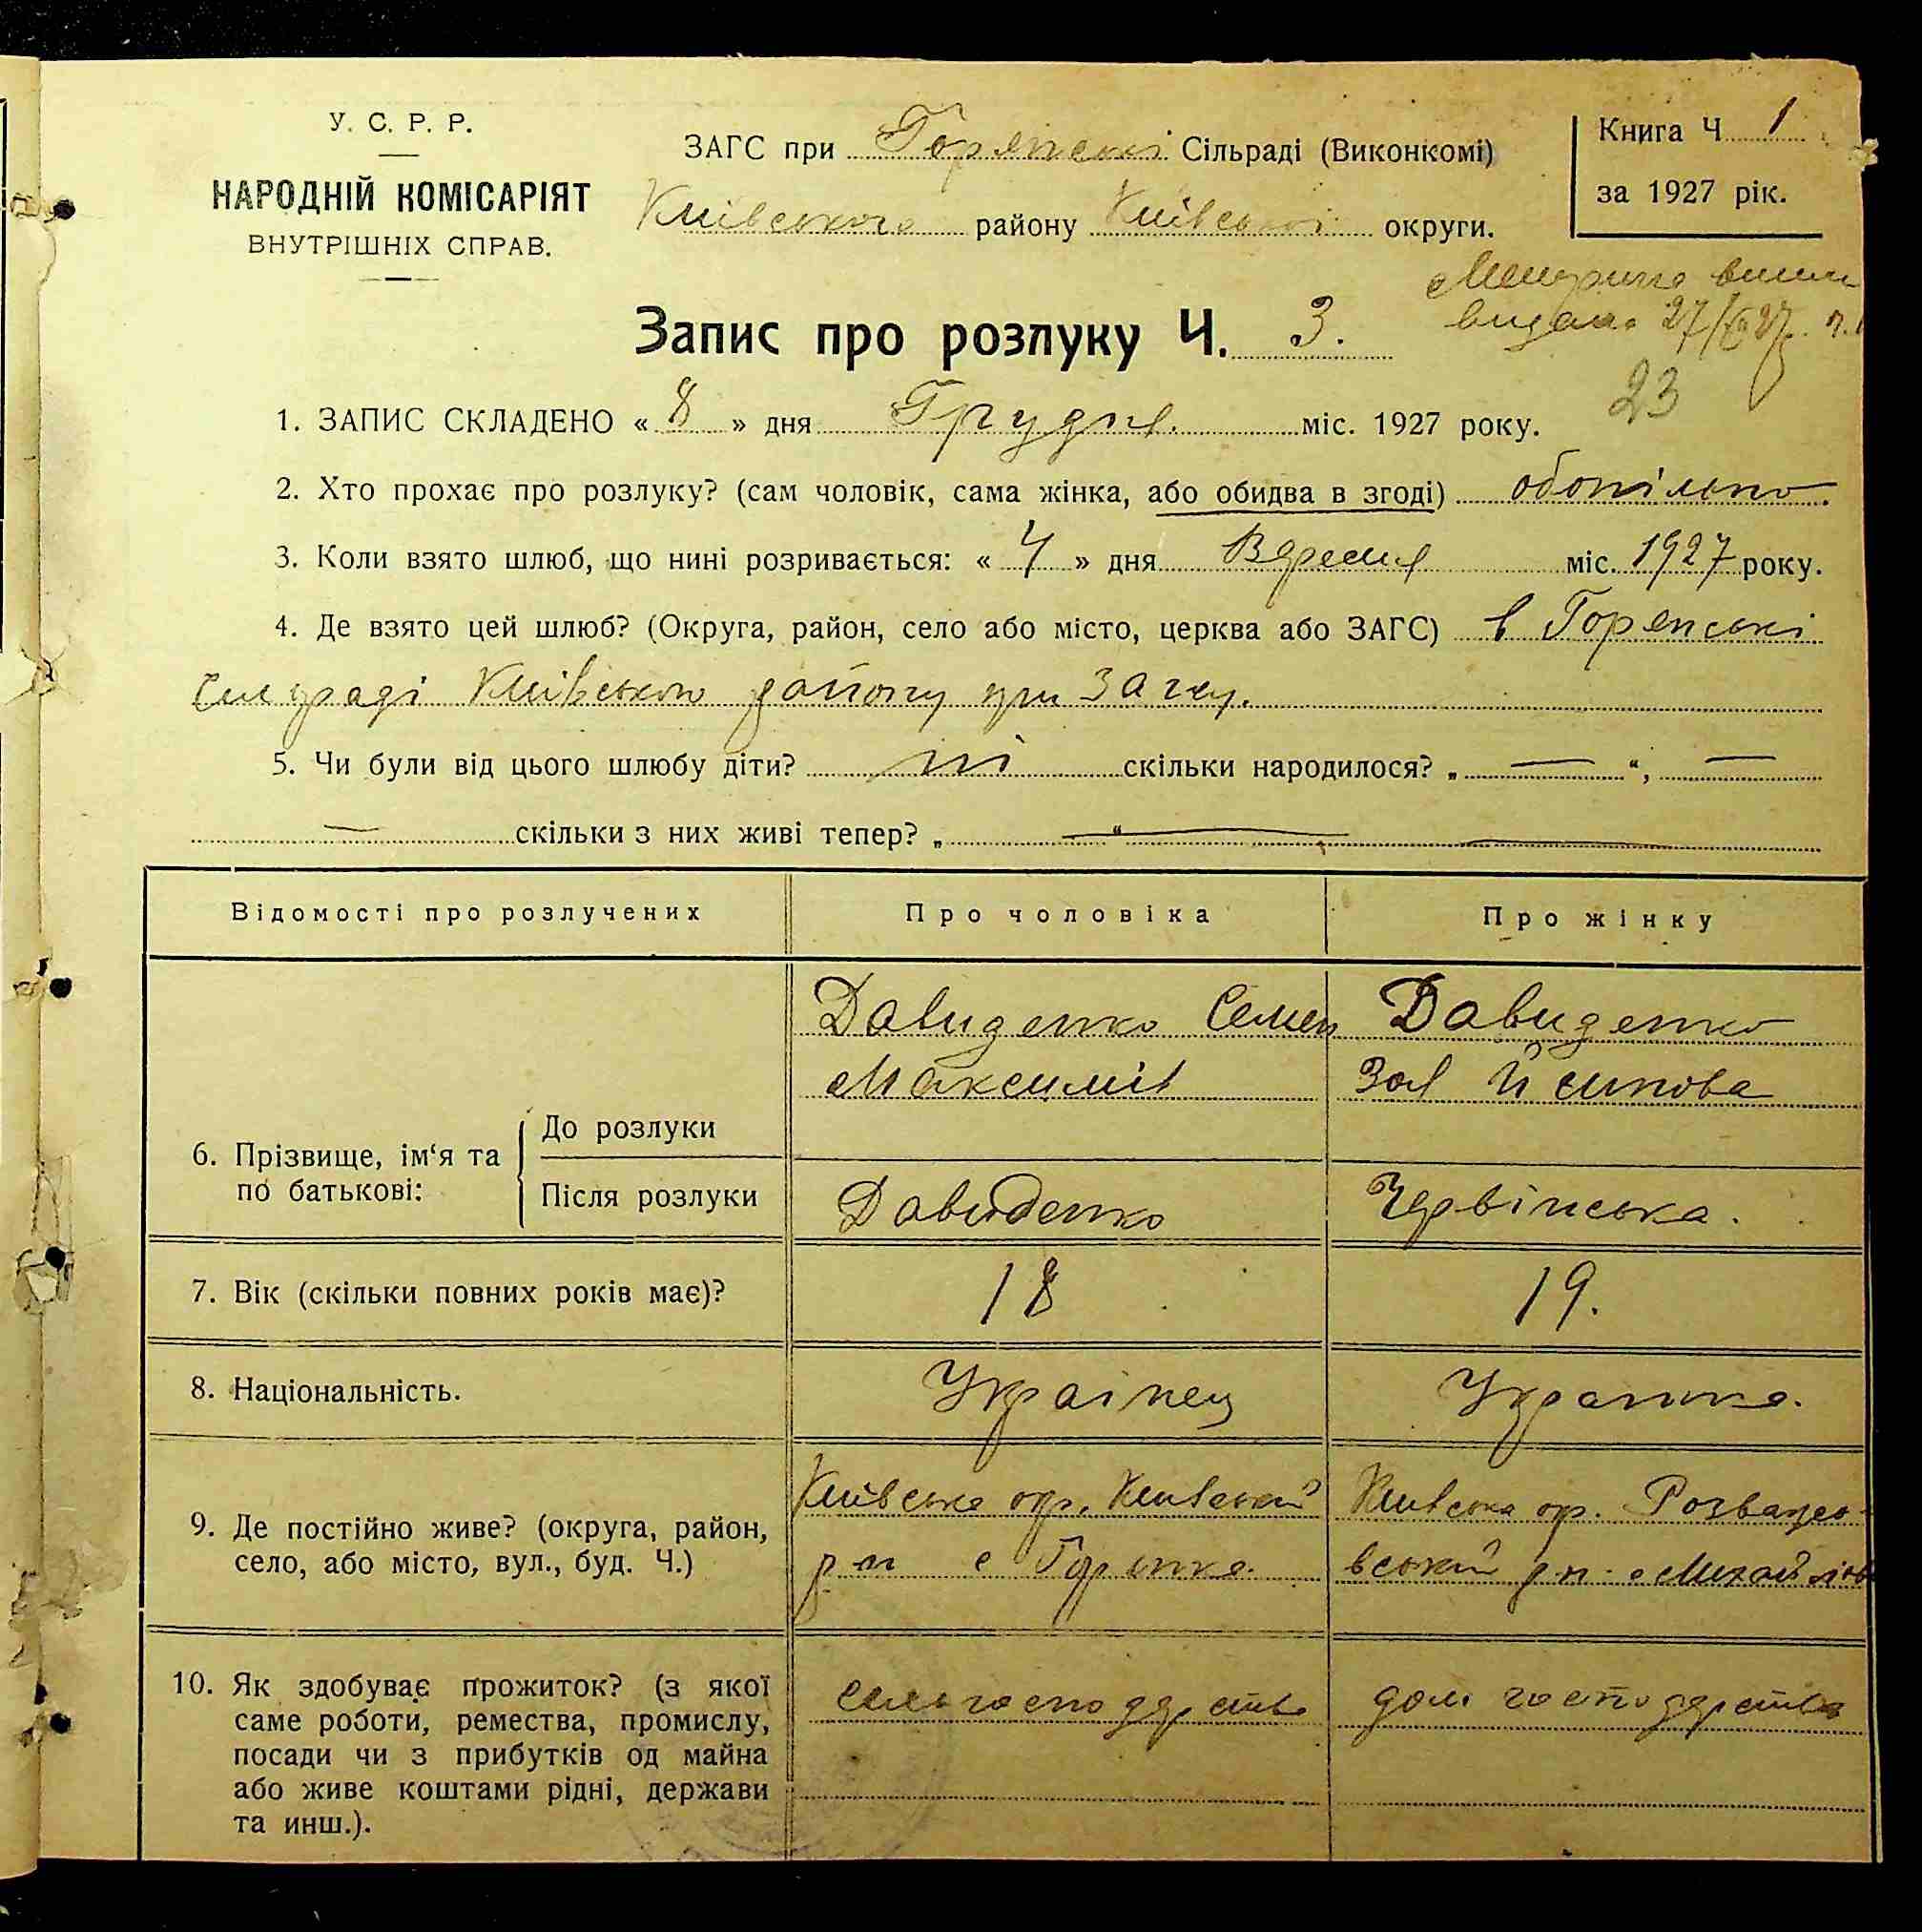 У. С. Р. Р.
НАРОДНІЙ КОМІСАРІЯТ
ВНУТРІШНІХ СПРАВ.
ЗАГС при Горянські Сільраді (Виконкомі)
Київського району Київської округи.
Книга Ч 1
за 1927 рік.
видано 27/
Запис про розлуку Ч. 3.
23
1. ЗАПИС СКЛАДЕНО « 8 » дня Грудня. міс. 1927 року.
2. Хто прохає про розлуку? (сам чоловік, сама жінка, або обидва в згоді) обопільно.
3. Коли взято шлюб, що нині розривається: « 4 » дня Вересня міс. 1927 року.
4. Де взято цей шлюб? (Округа, район, село або місто, церква або ЗАГС) в Горянські
сильраді Київського району при Загсу.
5. Чи були від цього шлюбу діти? ні скільки народилося? „ — “, —
— скільки з них живі тепер? „ — “ —
Відомості про розлучених Про чоловіка Про жінку
6. Прізвище, ім‘я та по батькові:
До розлуки
Давиденко Семен
Максимів
Давиденко
Зоя Йсипова
Після розлуки Давиденко Червінська.
7. Вік (скільки повних років має)? 18 19.
8. Національність. Украінец Украинка.
9. Де постійно живе? (округа, район,
село, або місто, вул., буд. Ч.)
Київська окр. Київський
р-н с Горянка.
Київська ор. Розваже-
вський р-н. с Михайлівк
10. Як здобуває прожиток? (з якої
саме роботи, ремества, промислу,
посади чи з прибутків од майна
або живе коштами рідні, держави
та инш.).
сельгосподарство
дом господарство